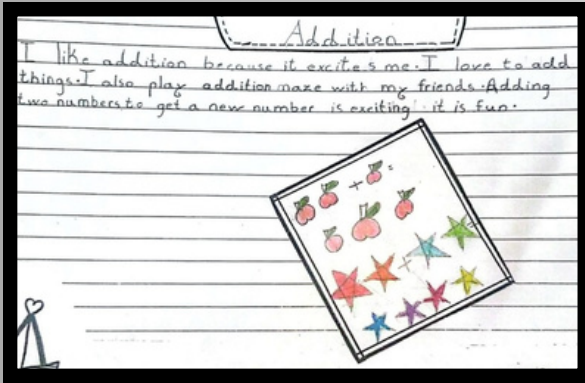 Addition
I like addition because it excites me. I love to add
things. I also play addition maze with my friends. Adding
two numbers to get a new number is exciting! it is fun.
+ =
+